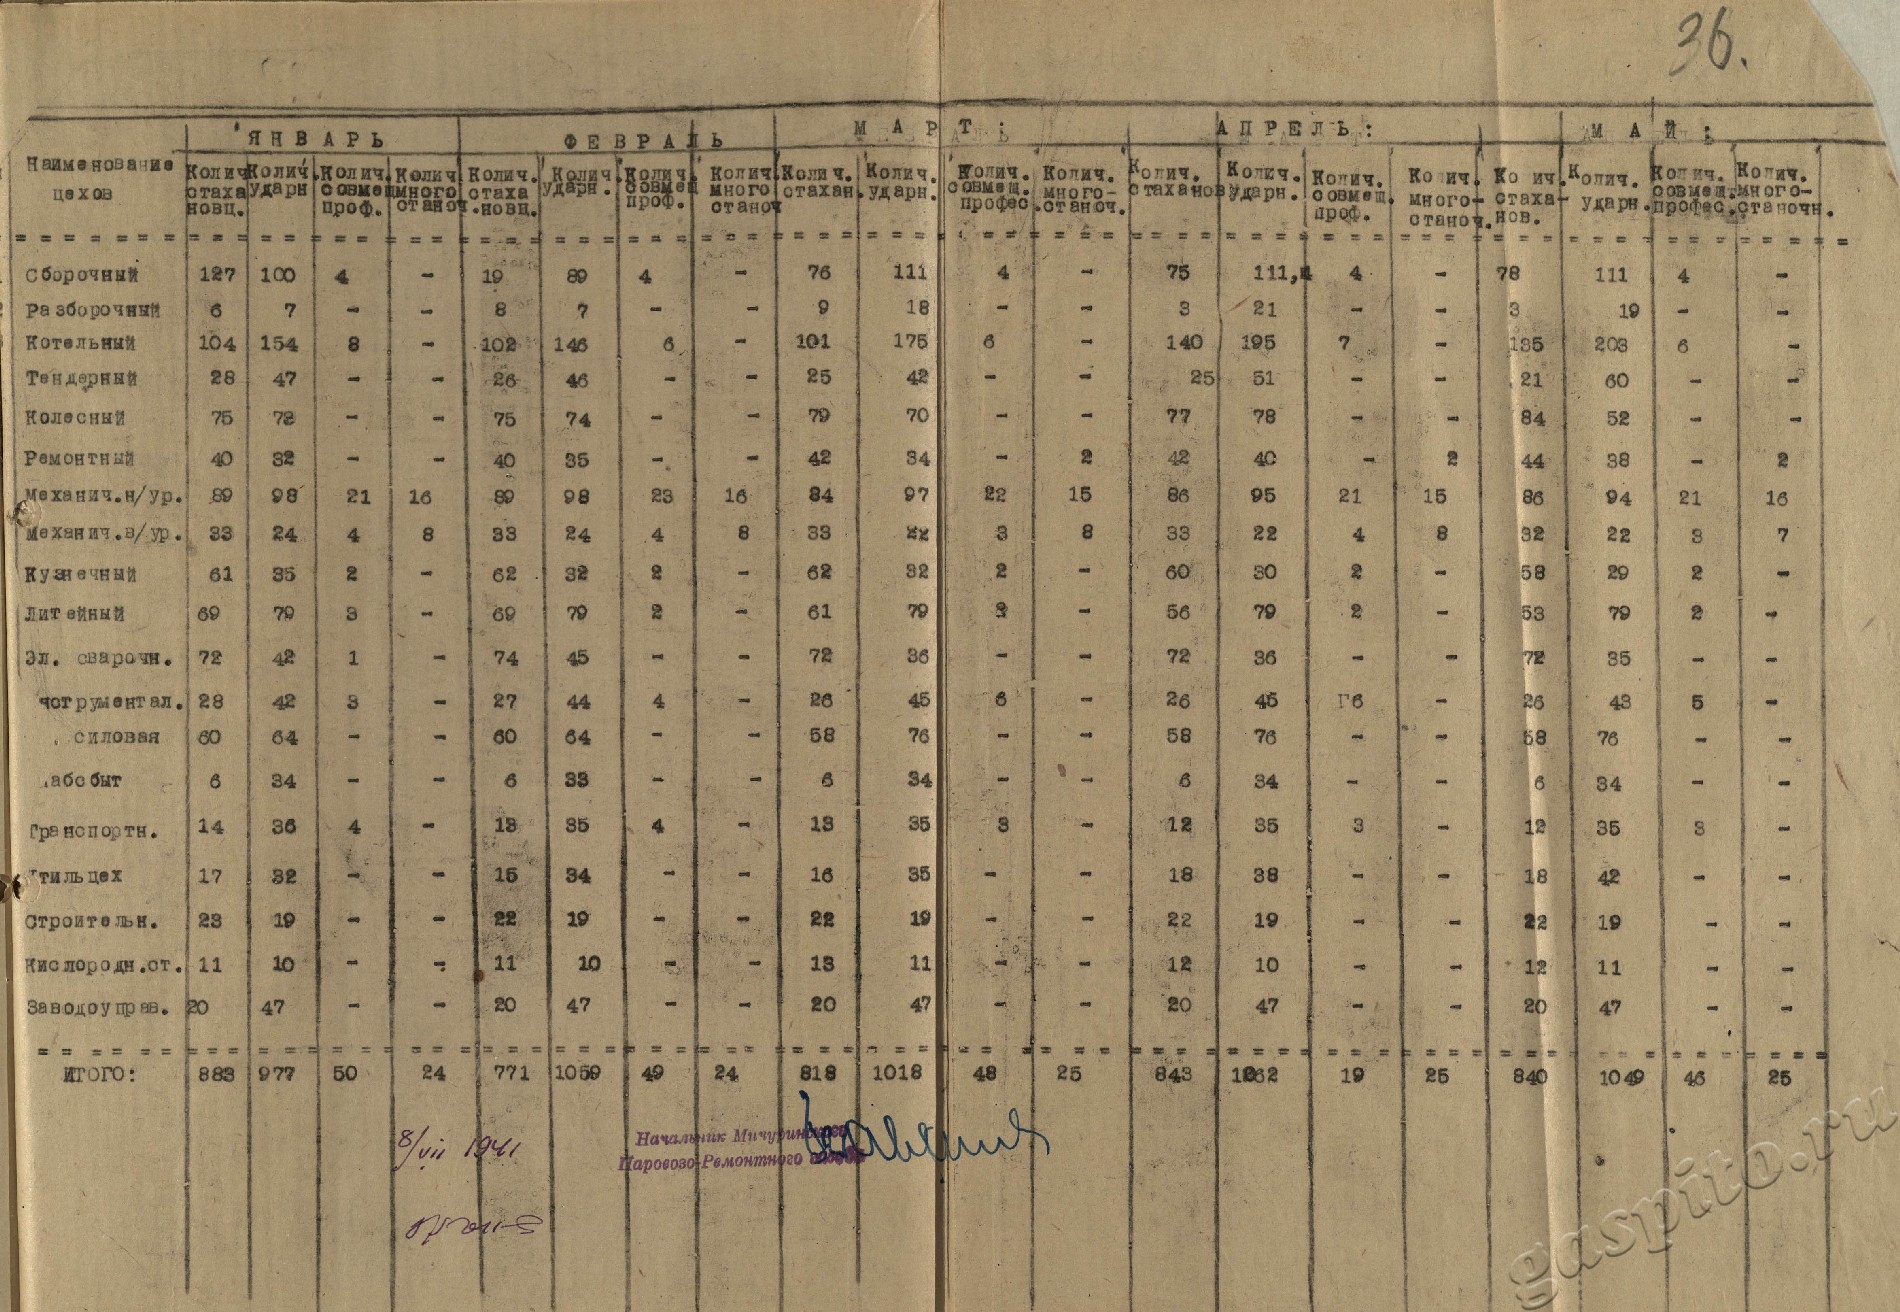 36.
ЯНВАРЬ ФЕВРАЛЬ МАРТ: АПРЕЛЬ: МАЙ:
Наименование цехов Колич. стаха новц. Колич. ударн Колич. совмещ проф. Колич много станоч. Колич. стаха новц. Колич ударн. Колич. совмещ проф. Колич много станоч Колич. стахан. Колич. ударн. Колич. совмещ. профес. Колич. много-станоч. Колич. стаханов. Колич. ударн. Колич. совмещ. проф. Колич. много-станоч. Колич. стаха-нов. Колич. ударн. Колич. совмещ. профес. Колич. много-станочн.
Сборочный 127 100 4 - 19 89 4 - 76 111 4 - 75 111,4 4 - 78 111 4 -
Разборочный 6 7 - - 8 7 - - 9 18 - - 3 21 - - 3 19 - -
Котельный 104 154 8 - 102 146 6 - 101 175 6 - 140 195 7 - 135 203 6 -
Тендерный 28 47 - - 26 46 - - 25 42 - - 25 51 - - 21 60 - -
Колесный 75 72 - - 75 74 - - 79 70 - - 77 78 - - 84 52 - -
Ремонтный 40 32 - - 40 35 - - 42 34 - 2 42 40 - 2 44 38 - 2
Механич.н/ур. 89 98 21 16 89 98 23 16 84 97 22 15 86 95 21 15 86 94 21 16
Механич.в/ур. 33 24 4 8 33 24 4 8 33 22 3 8 33 22 4 8 32 22 3 7
Кузнечный 61 35 2 - 62 32 2 - 62 32 2 - 60 30 2 - 58 29 2 -
Литейный 69 79 3 - 69 79 2 - 61 79 2 - 56 79 2 - 53 79 2 -
Эл. сварочн. 72 42 1 - 74 45 - - 72 36 - - 72 36 - - 72 35 - -
нструментал. 28 42 3 - 27 44 4 - 26 45 6 - 26 45 Г6 - 26 43 5 -
силовая 60 64 - - 60 64 - - 58 76 - - 58 76 - - 58 76 - -
набсбыт 6 34 - - 6 33 - - 6 34 - - 6 34 - - 6 34 - -
Транспортн. 14 36 4 - 13 35 4 - 13 35 3 - 12 35 3 - 12 35 3 -
Утильцех 17 32 - - 15 34 - - 16 35 - - 18 38 - - 18 42 - -
Строительн. 23 19 - - 22 19 - - 22 19 - - 22 19 - - 22 19 - -
Кислородн.ст. 11 10 - - 11 10 - - 13 11 - - 12 10 - - 12 11 - -
Заводоуправ. 20 47 - - 20 47 - - 20 47 - - 20 47 - - 20 47 - -
ИТОГО: 883 977 50 24 771 1059 49 24 818 1018 48 25 843 1062 19 25 840 1049 46 25
8/VII 1941
Начальник Мичуринского
Паровозо-Ремонтного завода
gaspito.ru